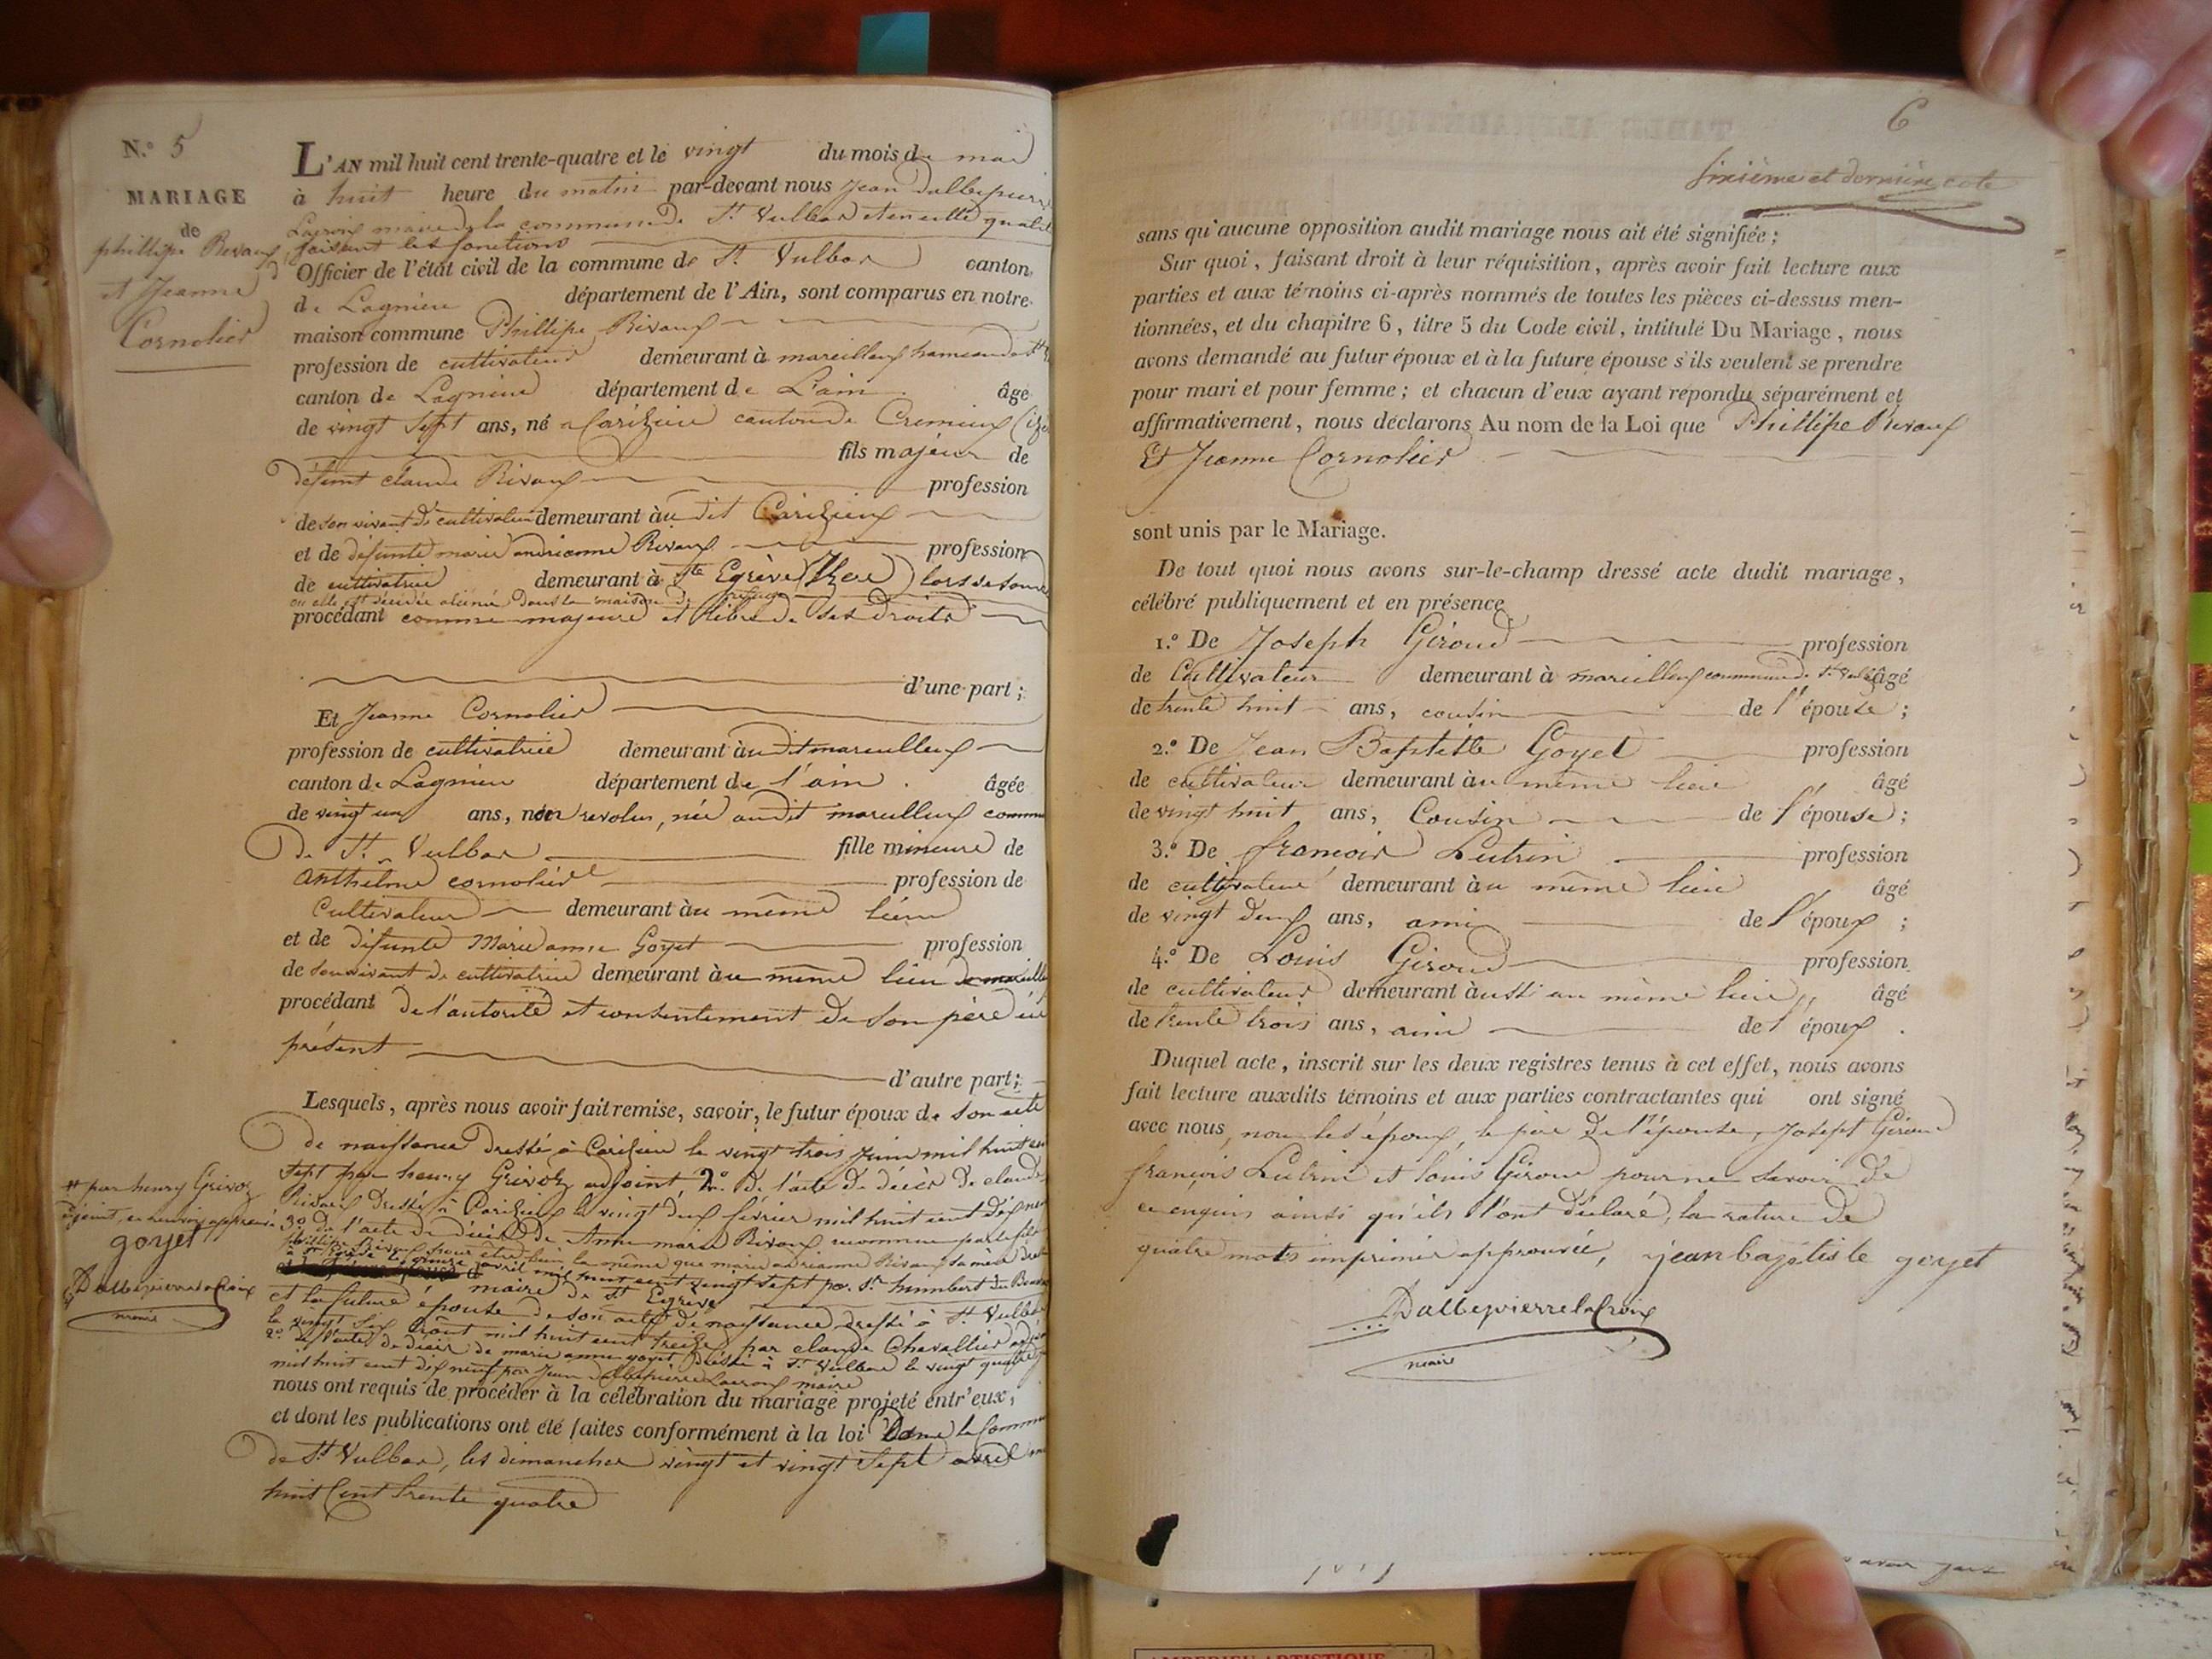 N.° 5
MARIAGE
de
phillipe Rivaux
et Jeanne
Cornolier
L'AN mil huit cent trente-quatre et le vingt du mois de mai
à huit heure du matin par-devant nous Jean Dallepierre
Lacroix maire de la commune de St. Vulbas et en cette qualité
faisant les fonctions
Officier de l'état civil de la commune de St. Vulbas canton
de Lagnieu département de l'Ain, sont comparus en notre
maison commune Phillipe Rivaux
profession de cultivateur demeurant à marcilleux hameau de St
canton de Lagnieu département de L'ain âgé
de vingt sept ans, né a Carizieu canton de Cremieux
fils majeur de
défunt claude Rivaux profession
de son vivant de cultivateur demeurant àu dit Carizieux
et de défunte marie andrianne Rivaux profession
de cultivatrice demeurant à Ste Egrève lors de son
ou elle est décédée dans la maison de
procédant comme majeure et libre de ses droits
d'une part ;
Et Jeanne Cornolier
profession de cultivatrice demeurant àu dit marcilleux
canton de Lagnieu département de l'ain âgée
de vingt un ans, non revolus, née audit marcilleux commu
de St. Vulbas fille mineure de
Anthelme cornolier profession de
Cultivateur demeurant àu même lieu
et de défunte Marie anne Goyet profession
de son vivant de cultivatrice demeurant àu même lieu
procédant de l'autorité et consentement de son père ici
présent
d'autre part ;
Lesquels, après nous avoir fait remise, savoir, le futur époux de son acte
de naissance dressé à Carizieu le vingt trois juin mil huit cent
sept par henry Grivoz adjoint 2.° De l'acte de décès de claude
Rivaux dressé à Carizieux le vingt deux février mil huit cent dix neuf
3° de l'acte de décès de Anne marie Rivaux reconnue par le fils
phillipe Rivaux pour être bien la même que marie andrianne Rivaux sa mère
à St Egrève le quinze avril mil huit cent vingt sept par Sr humbert
maire de St Egrève
et la future épouse de son acte de naissance dressé à St. Vulbas
le vingt six août mil huit cent treize par claude Chevallier
2° de l'acte de décès de marie anne goyet dressé à St Vulbas le vingt quatre
mil huit cent dix neuf par Jean Dallepierre Lacroix maire
nous ont requis de procéder à la célébration du mariage projeté entr'eux,
et dont les publications ont été faites conformément à la loi Dans la Commu
de St Vulbas, les dimanches vingt et vingt Sept avril
huit Cent trente quatre
# par henry Grivoz
adjoint, en renvoi approuvé
goyet
Dallepierre lacroix
maire
6
Sixième et dernière cote
sans qu'aucune opposition audit mariage nous ait été signifiée ;
Sur quoi, faisant droit à leur réquisition, après avoir fait lecture aux
parties et aux témoins ci-après nommés de toutes les pièces ci-dessus men-
tionnées, et du chapitre 6, titre 5 du Code civil, intitulé Du Mariage, nous
avons demandé au futur époux et à la future épouse s'ils veulent se prendre
pour mari et pour femme ; et chacun d'eux ayant répondu séparément et
affirmativement, nous déclarons Au nom de la Loi que Phillipe Rivaux
Et Jeanne Cornolier
sont unis par le Mariage.
De tout quoi nous avons sur-le-champ dressé acte dudit mariage,
célébré publiquement et en présence
1.° De Joseph Giroud profession
de Cultivateur demeurant à marcilleux commune de St Vulbas âgé
de trente huit ans, cousin de l'épouse ;
2.° De Jean Baptiste Goyet profession
de cultivateur demeurant àu même lieu âgé
de vingt huit ans, Cousin de l'épouse ;
3.° De françois Lutrin profession
de cultivateur demeurant àu même lieu âgé
de vingt deux ans, ami de l'époux ;
4.° De Louis Giroud profession
de cultivateur demeurant àussi au même lieu âgé
de trente trois ans, ami de l'époux .
Duquel acte, inscrit sur les deux registres tenus à cet effet, nous avons
fait lecture auxdits témoins et aux parties contractantes qui ont signé
avec nous, non les époux, le père de l'épouse, Joseph Giroud
françois Lutrin et louis Giroud pour ne savoir de
ce enquis ainsi qu'ils l'ont déclaré, la rature de
quatre mots imprimés approuvée, jean baptiste goyet
Dallepierre lacroix
maire
AMBERIEU ARTISTIQUE